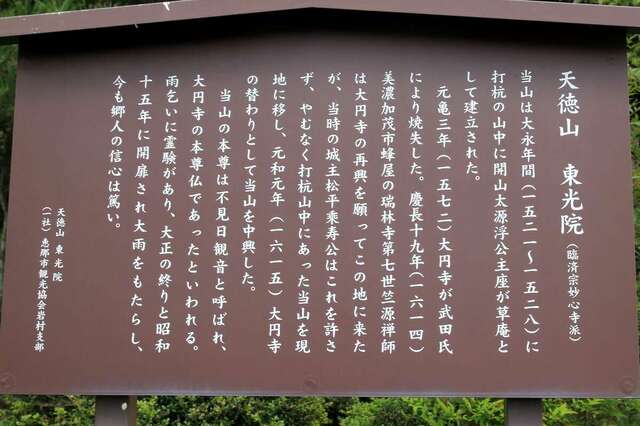 天徳山　東光院（臨済宗妙心寺派）
当山は大永年間（一五二一～一五二八）に
打杭の山中に開山太源浮公主座が草庵と
して建立された。
元亀三年（一五七二）大円寺が武田氏
により焼失した。慶長十九年（一六一四）
美濃加茂市蜂屋の瑞林寺第七世竺源禅師
は大円寺の再興を願ってこの地に来た
が、当時の城主松平乗寿公はこれを許さ
ず、やむなく打杭山中にあった当山を現
地に移し、元和元年（一六一五）大円寺
の替わりとして当山を中興した。
当山の本尊は不見日観音と呼ばれ、
大円寺の本尊仏であったといわれる。
雨乞いに霊験があり、大正の終りと昭和
十五年に開扉され大雨をもたらし、
今も郷人の信心は篤い。
天徳山　東光院
（一社）恵那市観光協会岩村支部